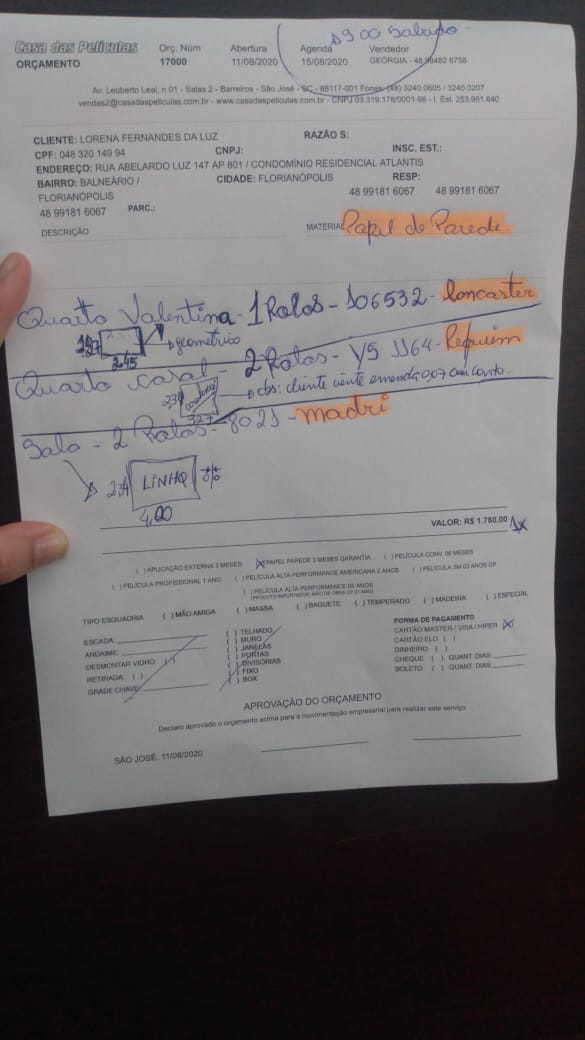 900 Sabado.
Casa das Películas Orç. Núm Abertura Agenda Vendedor
ORÇAMENTO 17000 11/08/2020 15/08/2020 GEÓRGIA - 48 98482 6758
Av. Leoberto Leal, n 01 - Salas 2 - Barreiros - São José - SC - 88117-001 Fones: (48) 3240.0605 / 3240.0207
vendas2@casadaspeliculas.com.br - www.casadaspeliculas.com.br - CNPJ 03.319.178/0001-98 - I. Est. 253.951.640
CLIENTE: LORENA FERNANDES DA LUZ RAZÃO S:
CPF: 048 320 149 94 CNPJ: INSC. EST.:
ENDEREÇO: RUA ABELARDO LUZ 147 AP 801 / CONDOMÍNIO RESIDENCIAL ATLANTIS
BAIRRO: BALNEÁRIO / CIDADE: FLORIANÓPOLIS RESP:
FLORIANÓPOLIS 48 99181 6067 48 99181 6067
48 99181 6067 PARC.:
DESCRIÇÃO MATERIAL Papel de Parede.
Quarto Valentina - 1 Rolos - 106532 - loncaster
geometrico
2.45
Quarto casal - 2 Rolos - Y5 1164 - Requiem
obs: cliente ciente emenda
327
Sala - 2 Rolos - 8021 - madri
234 LINHO
4,00
VALOR: R$ 1.780,00 1x
( ) APLICAÇÃO EXTERNA 3 MESES (X) PAPEL PAREDE 3 MESES GARANTIA ( ) PELÍCULA CONV. 06 MESES
( ) PELÍCULA PROFISSIONAL 1 ANO ( ) PELÍCULA ALTA PERFORMANCE AMERICANA 2 ANOS ( ) PELÍCULA 3M 03 ANOS CP
( ) PELÍCULA ALTA PERFORMANCE 05 ANOS
TIPO ESQUADRIA ( ) MÃO AMIGA ( ) MASSA ( ) BAGUETE ( ) TEMPERADO ( ) MADEIRA ( ) ESPECIAL
ESCADA:
ANDAIME:
DESMONTAR VIDRO: ( )
RETIRADA: ( )
GRADE CHAVE:
( ) TELHADO
( ) MURO
( ) JANELAS
( ) PORTAS
( ) DIVISÓRIAS
( ) FIXO
( ) BOX
FORMA DE PAGAMENTO
CARTÃO MASTER / VISA / HIPER (X)
CARTÃO ELO ( )
DINHEIRO ( )
CHEQUE ( ) QUANT. DIAS
BOLETO ( ) QUANT. DIAS
APROVAÇÃO DO ORÇAMENTO
Declaro aprovado o orçamento acima para a movimentação empresarial para realizar este serviço
SÃO JOSÉ, 11/08/2020